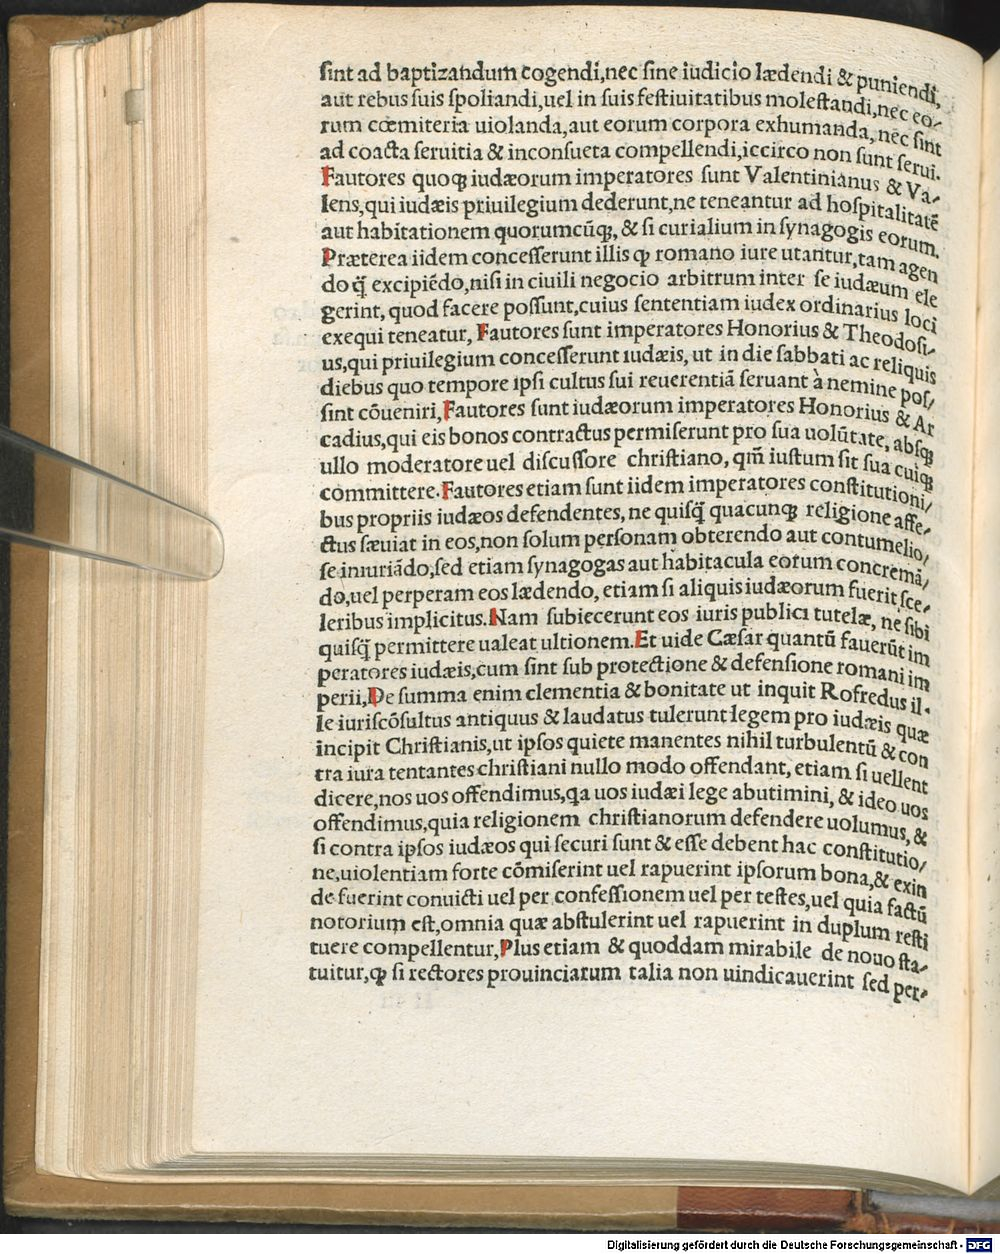 ſint ad baptizandum cogendi,nec ſine iudicio lædendi & puniendi,
aut rebus ſuis ſpoliandi,uel in ſuis feſtiuitatibus moleſtandi,nec eo/
rum cœmiteria uiolanda,aut eorum corpora exhumanda,nec ſint
ad coacta ſeruitia & inconſueta compellendi,iccirco non ſunt ſerui.
Fautores quoqꝫ iudæorum imperatores ſunt Valentinianus & Va/
lens,qui iudæis priuilegium dederunt,ne teneantur ad hoſpitalitatē
aut habitationem quorumcūqꝫ, & ſi curialium in ſynagogis eorum.
Præterea iidem conceſſerunt illis ꝙ romano iure utantur,tam agen
do q̃ excipiēdo,niſi in ciuili negocio arbitrum inter ſe iudæum ele
gerint, quod facere poſſunt,cuius ſententiam iudex ordinarius loci
exequi teneatur, Fautores ſunt imperatores Honorius & Theodoſi/
us,qui priuilegium conceſſerunt iudæis, ut in die ſabbati ac reliquis
diebus quo tempore ipſi cultus ſui reuerentiā ſeruant à nemine poſ/
ſint cōueniri,Fautores ſunt iudæorum imperatores Honorius & Ar
cadius,qui eis bonos contractus permiſerunt pro ſua uolūtate, abſqꝫ
ullo moderatore uel diſcuſſore chriſtiano, qm̄ iuſtum ſit ſua cuiqꝫ
committere.Fautores etiam ſunt iidem imperatores conſtitutioni/
bus propriis iudæos defendentes, ne quiſq̃ quacunqꝫ religione affe/
ctus ſæuiat in eos,non ſolum perſonam obterendo aut contumelio/
ſe iniuriādo,ſed etiam ſynagogas aut habitacula eorum concremā/
do,uel perperam eos lædendo, etiam ſi aliquis iudæorum fuerit ſce/
leribus implicitus.Nam ſubiecerunt eos iuris publici tutelæ, ne ſibi
quiſq̃ permittere ualeat ultionem.Et uide Cæſar quantū fauerūt im
peratores iudæis,cum ſint ſub protectione & defenſione romani im
perii,De ſumma enim clementia & bonitate ut inquit Rofredus il.
le iuriſcōſultus antiquus & laudatus tulerunt legem pro iudæis quæ
incipit Chriſtianis,ut ipſos quiete manentes nihil turbulentū & con
tra iura tentantes chriſtiani nullo modo offendant, etiam ſi uellent
dicere,nos uos offendimus,qa uos iudæi lege abutimini, & ideo uos
offendimus,quia religionem chriſtianorum defendere uolumus, &
ſi contra ipſos iudæos qui ſecuri ſunt & eſſe debent hac conſtitutio/
ne,uiolentiam forte cōmiſerint uel rapuerint ipſorum bona,& exin
de fuerint conuicti uel per confeſſionem uel per teſtes,uel quia factū
notorium eſt,omnia quæ abſtulerint uel rapuerint in duplum reſti
tuere compellentur,Plus etiam & quoddam mirabile de nouo ſta/
tuitur,ꝙ ſi rectores prouinciarum talia non uindicauerint ſed per/
Digitalisierung gefördert durch die Deutsche Forschungsgemeinschaft - DFG